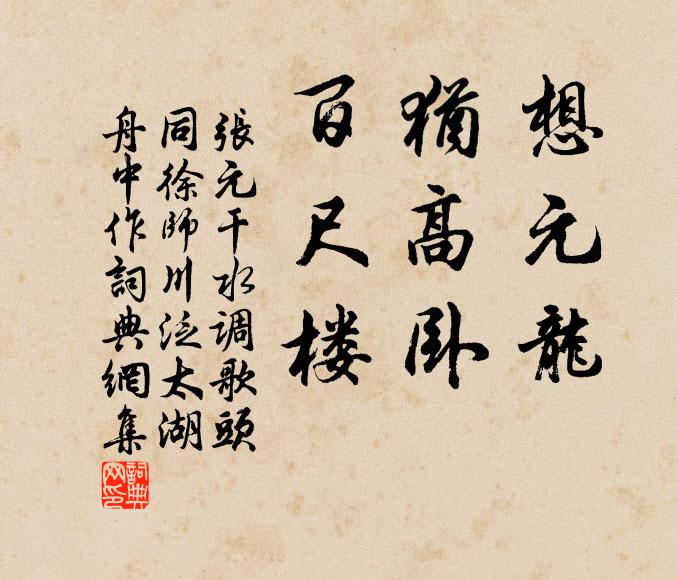 想元龍
猶高卧
百尺楼
張元干水调歌頭
同徐師川泛太湖
舟中作詞典網集
詞典网印